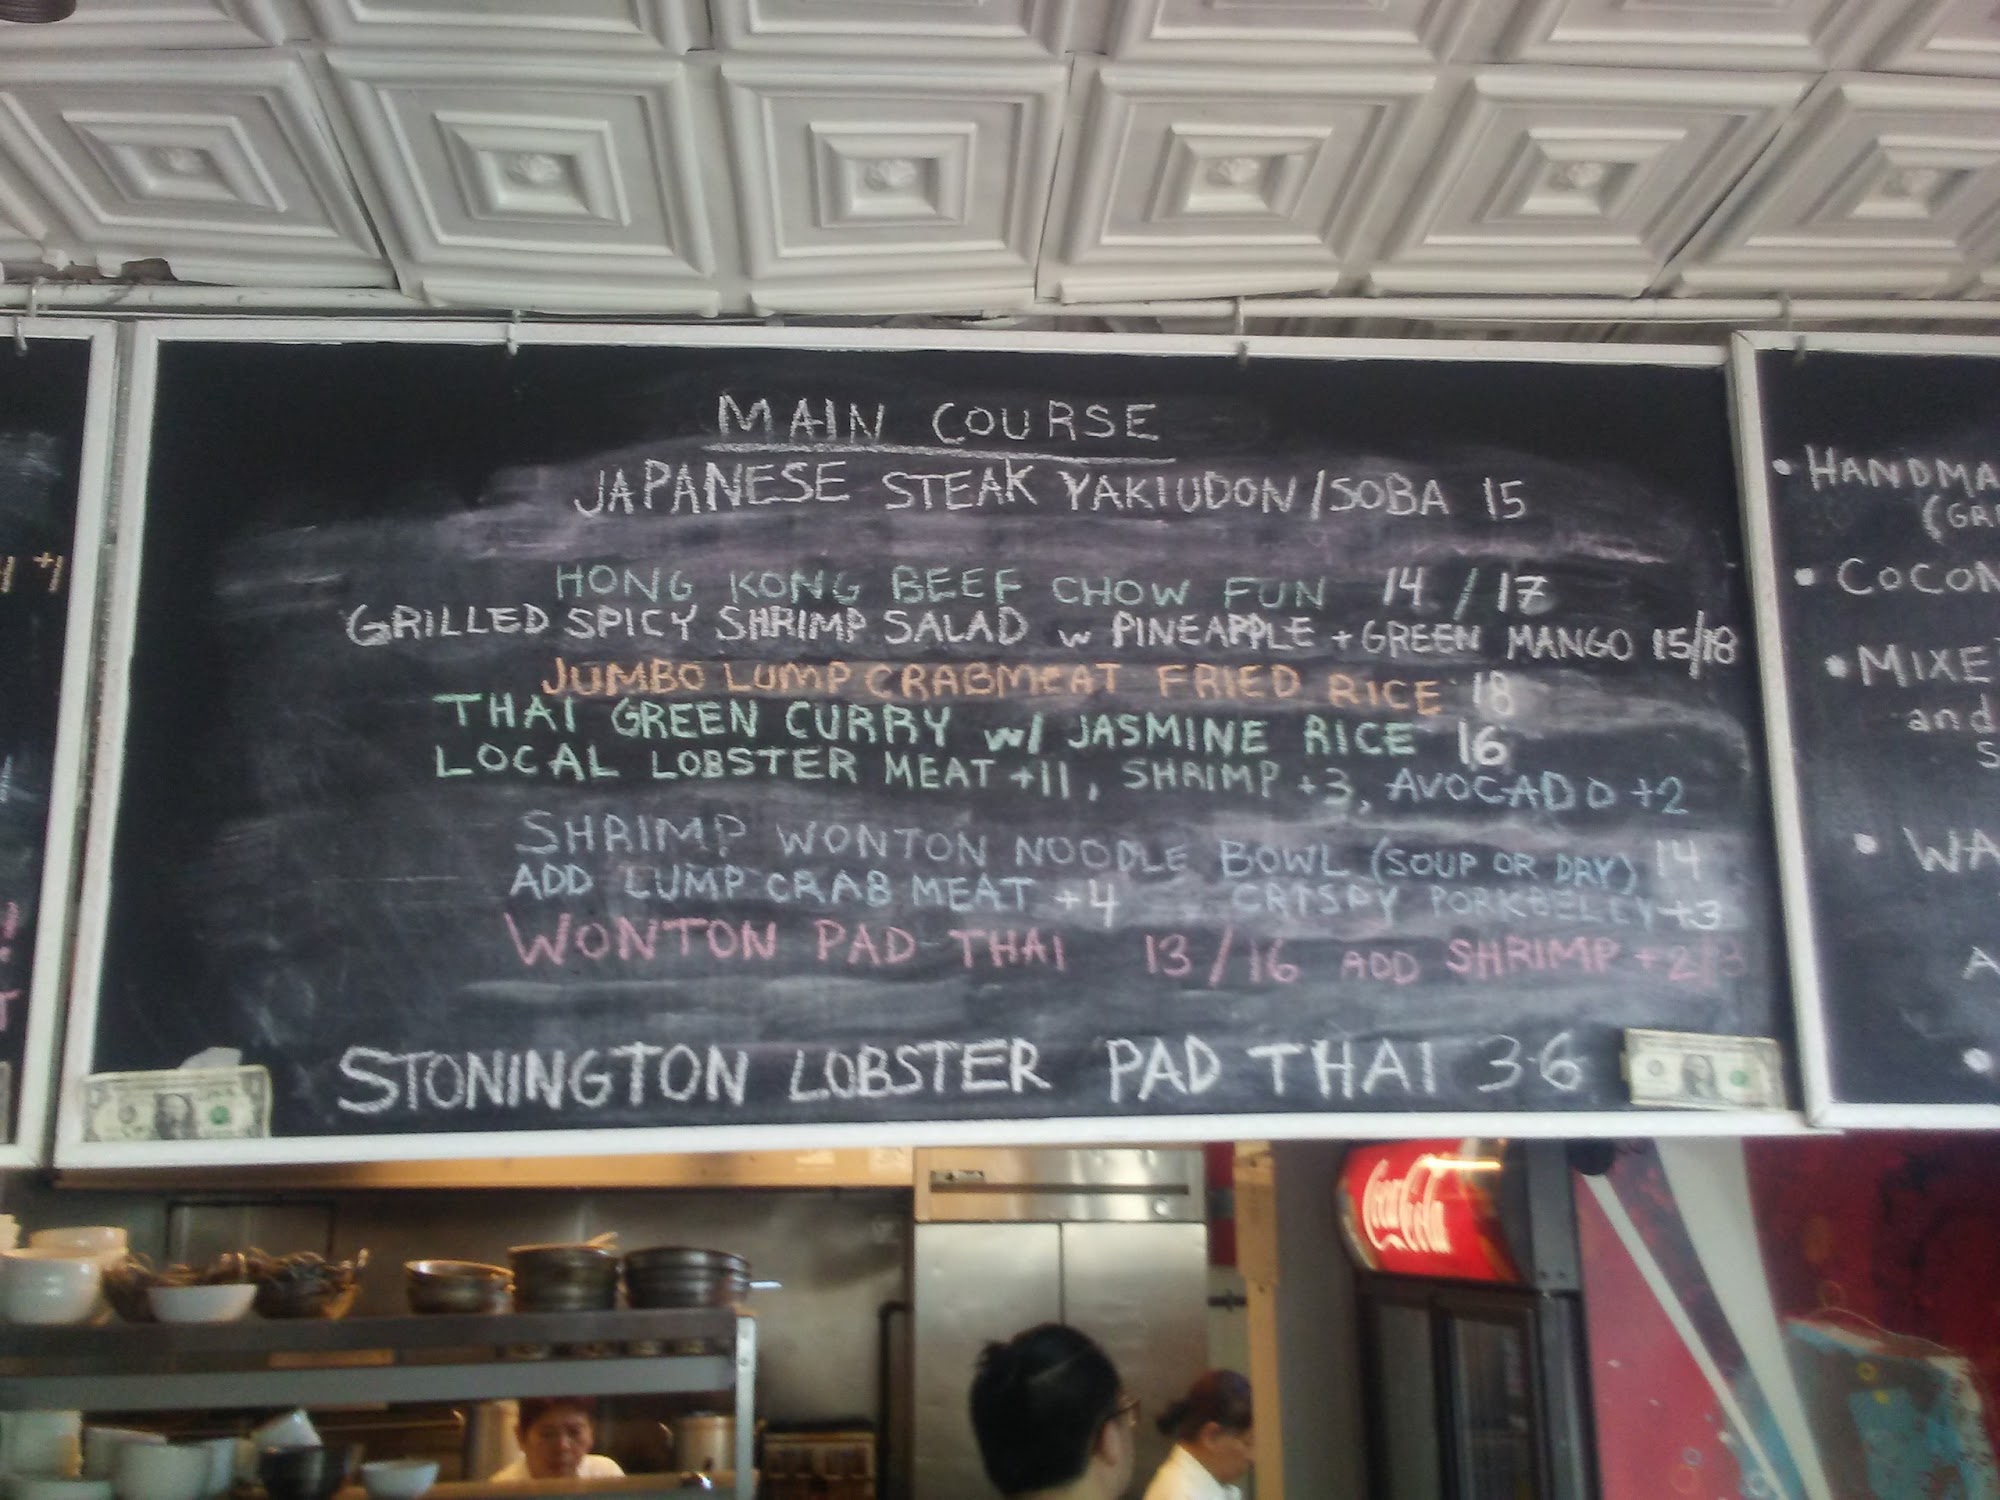 MAIN COURSE
JAPANESE STEAK YAKIUDON/SOBA 15
HONG KONG BEEF CHOW FUN 14/17
GRILLED SPICY SHRIMP SALAD w PINEAPPLE + GREEN MANGO 15/18
JUMBO LUMP CRABMEAT FRIED RICE 18
THAI GREEN CURRY w/ JASMINE RICE 16
LOCAL LOBSTER MEAT +11, SHRIMP +3, AVOCADO +2
SHRIMP WONTON NOODLE BOWL (SOUP OR DRY) 14
ADD LUMP CRAB MEAT +4 CRISPY PORKBELLY +3
WONTON PAD THAI 13/16 ADD SHRIMP +2/3
STONINGTON LOBSTER PAD THAI 3-6
+1
HANDMA
(GR
COCON
MIXE
and
S
WA
A
Coca-Cola